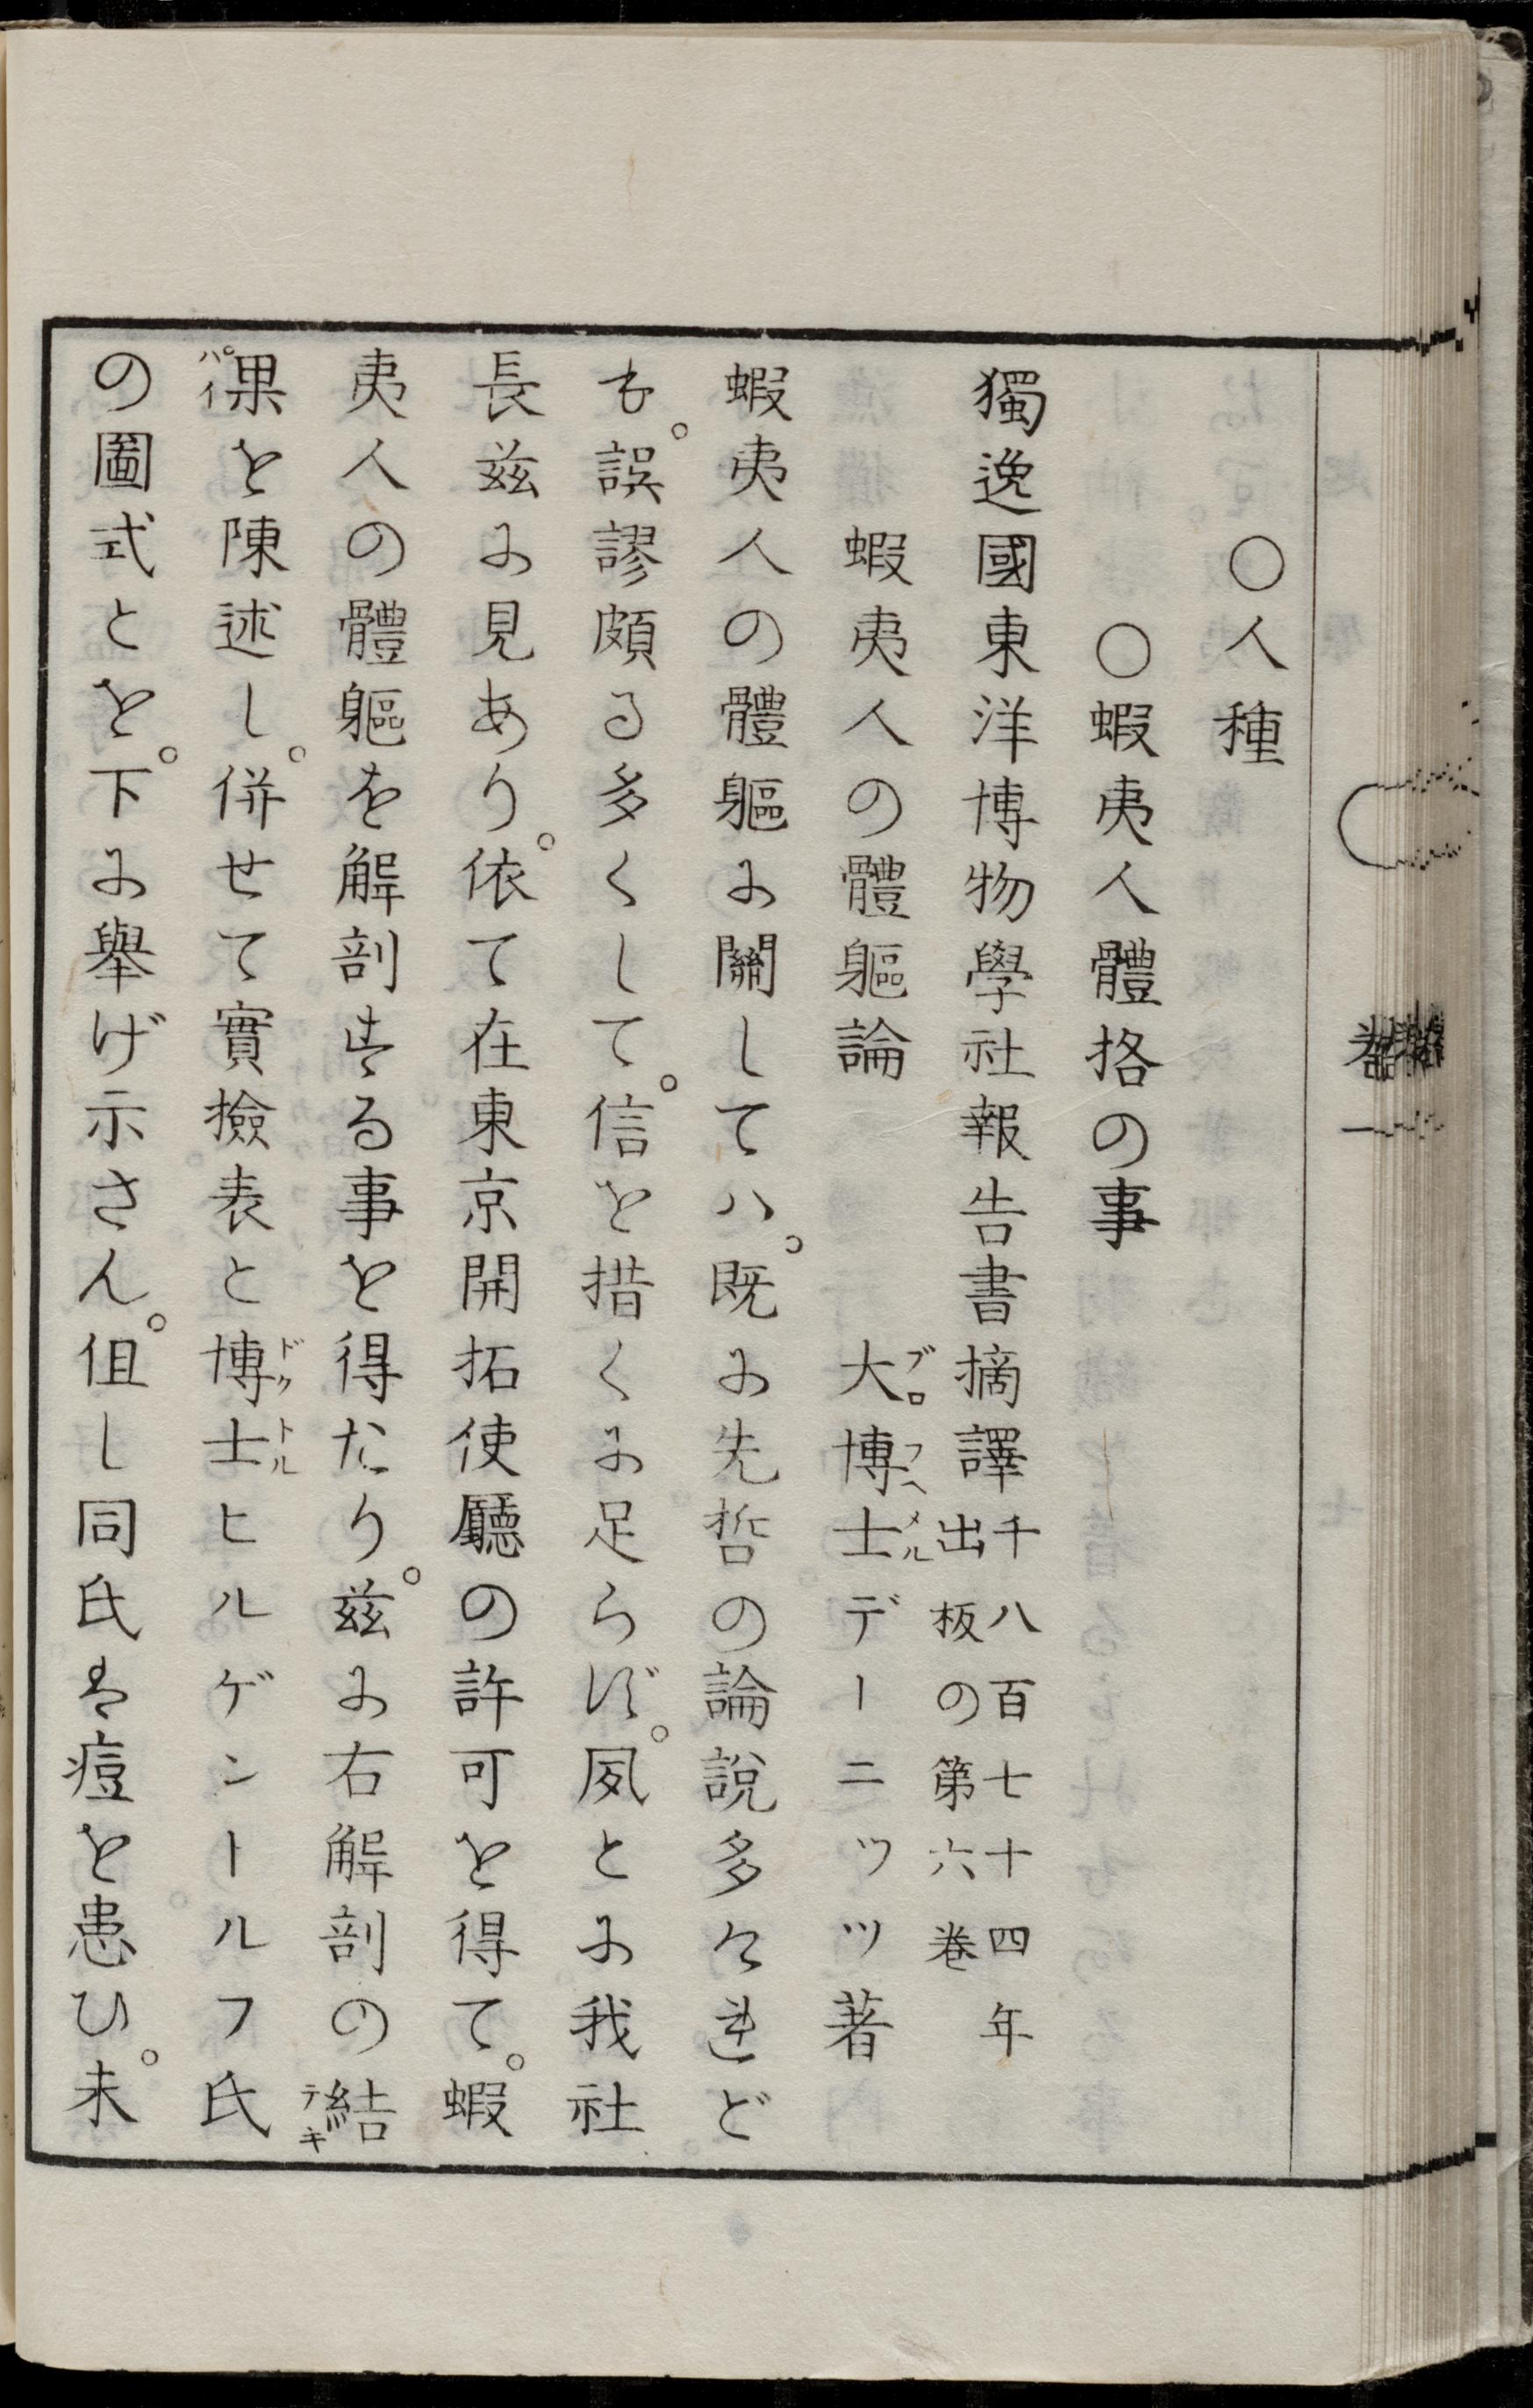 〇人種
〇蝦夷人體挌の事
獨逸國東洋博物學社報告書摘譯 千八百七十四年出板の第六巻
蝦夷人の體軀論 大博士デーニッツ著
蝦夷人の體軀に關してハ。既に先哲の論說多々れど
も。誤謬頗る多くして。信を措くに足らず。夙とに我社
長玆に見あり。依て在東京開拓使廳の許可を得て。蝦
夷人の體軀を解剖する事を得たり。玆に右解剖の結
果を陳述し。併せて實撿表と博士ヒルゲンートルフ氏
の圖式とを。下に舉げ示さん。伹し同氏は痘を患ひ。未
巻一